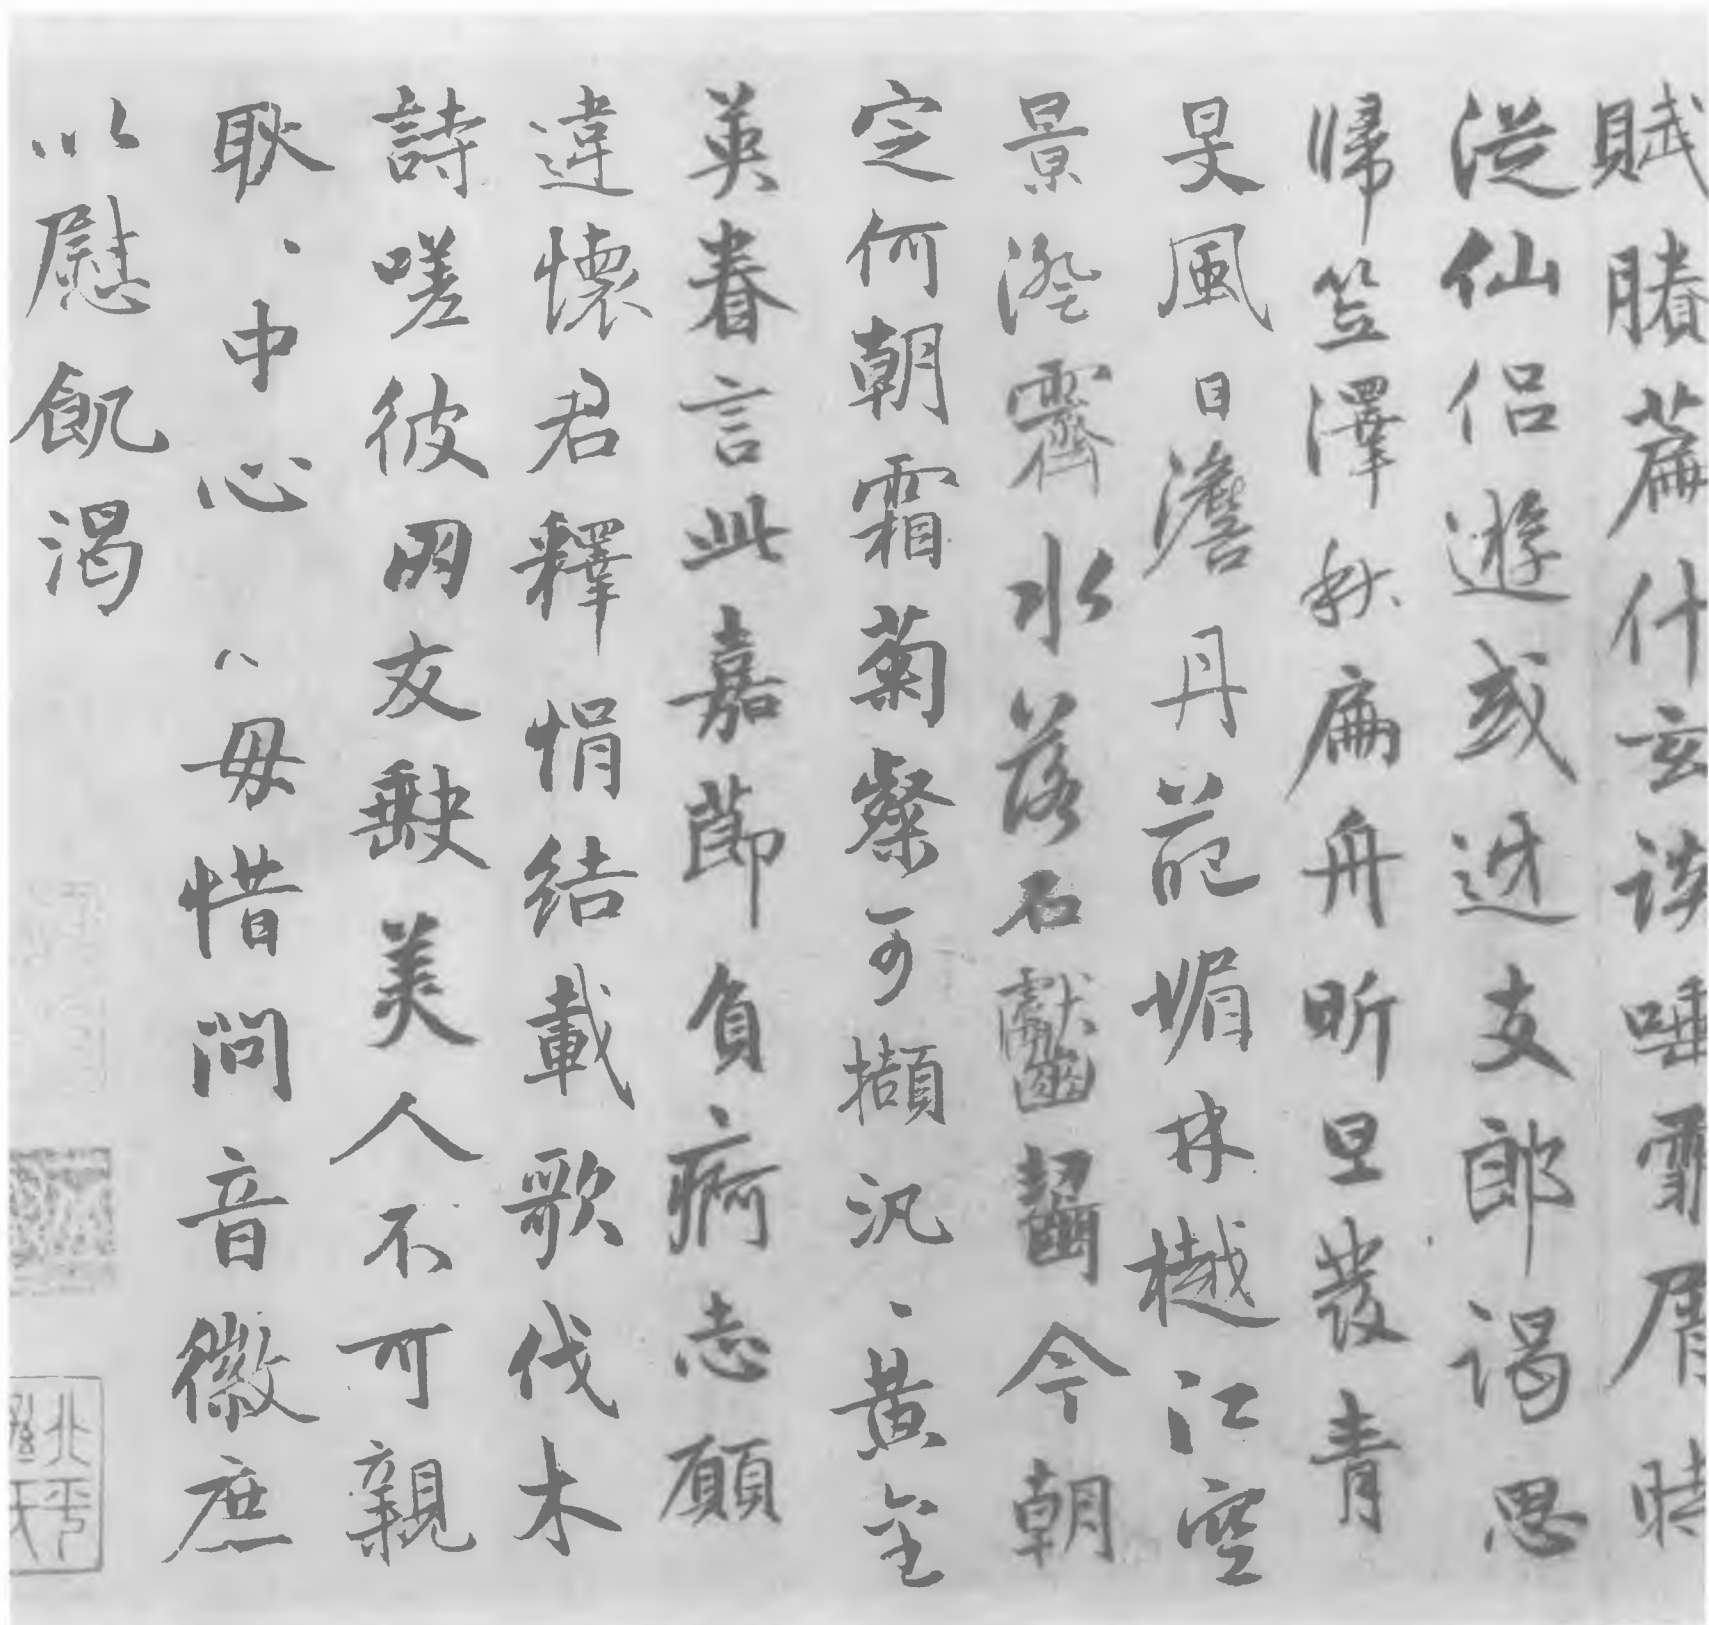 賦賸篇什玄談唾霏屑時
從仙侶遊或迓支郎謁思
歸笠澤秋扁舟昕旦發青
旻風日澹丹葩媚林樾江空
景澄霽水落石齾齧今朝
定何朝霜菊粲可擷汎、黃金
英眷言此嘉節負痾志願
違懷君釋悁結載歌伐木
詩嗟彼朋友缺美人不可親
耿、中心、、毋惜問音徽庶
以慰飢渴
北平